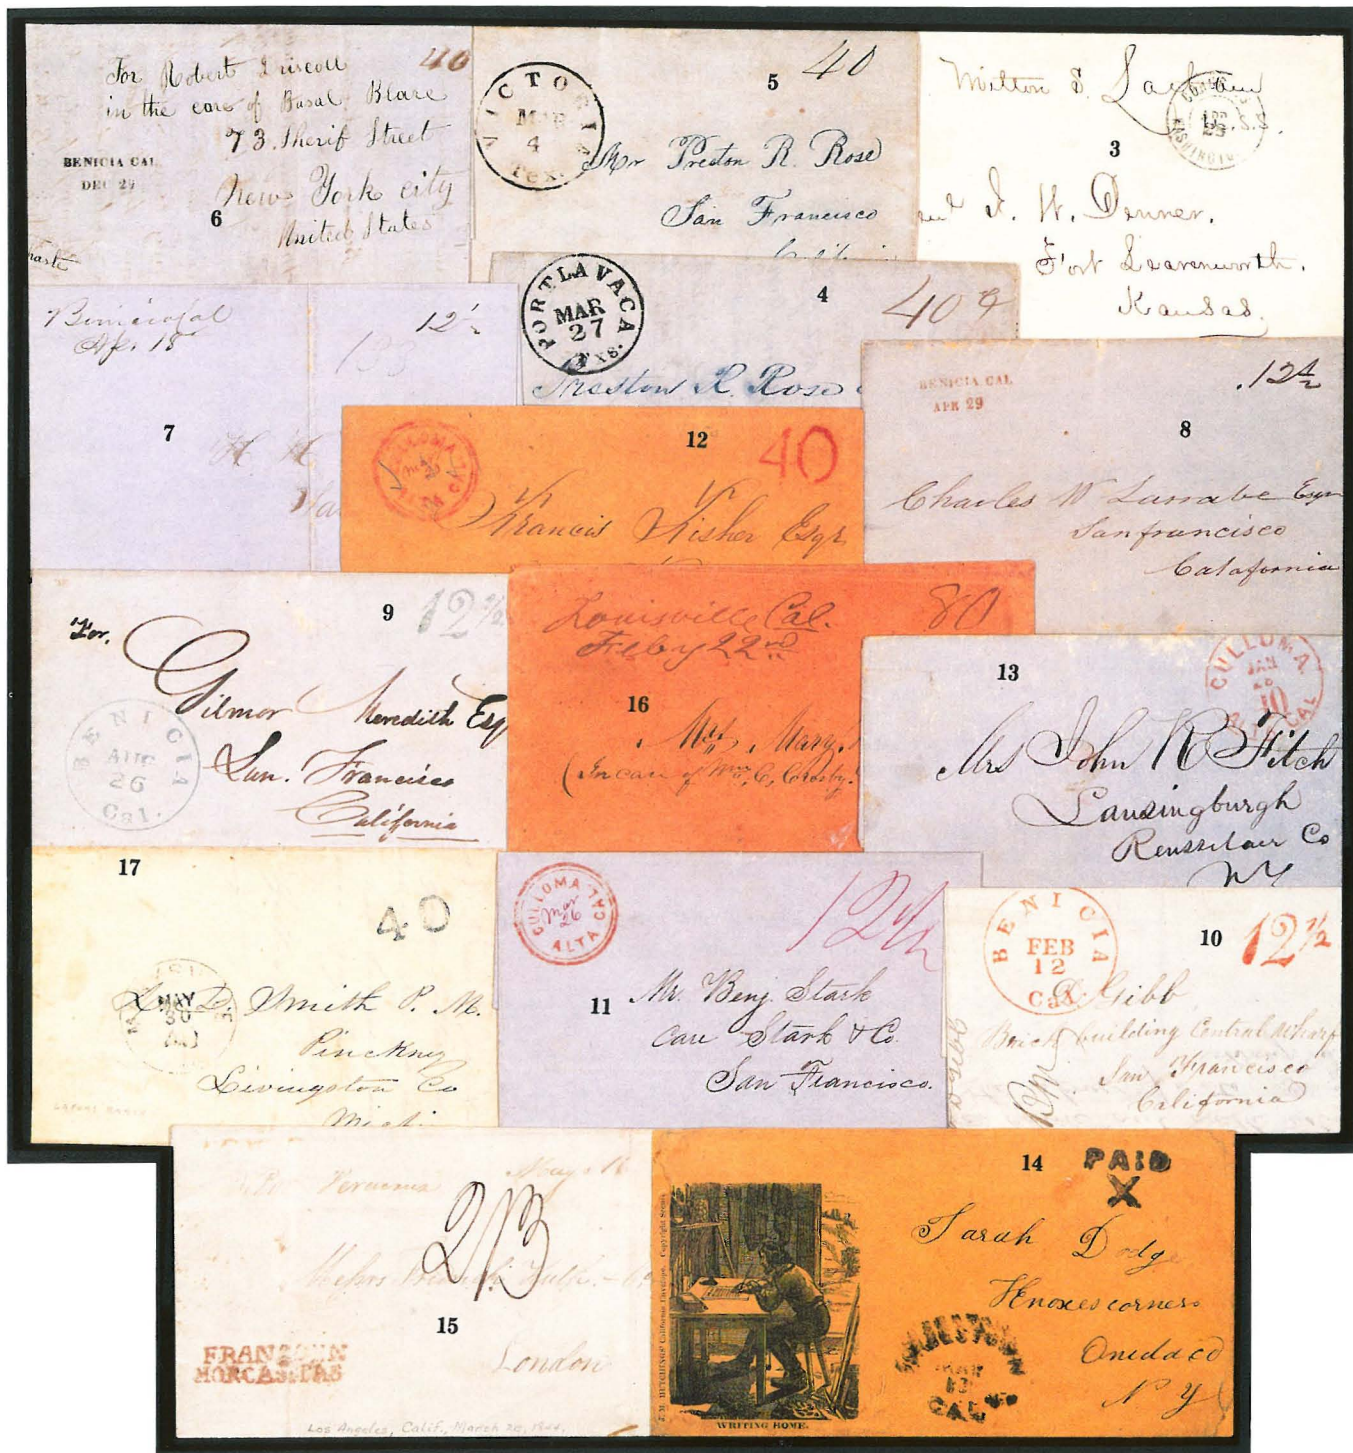 For Robert Driscoll
in the care of Basal Blare
73. Sherif Street
New York city
United States
40
BENICIA CAL
DEC 29
6
VICTORIA
MAR
4
Tex.
5
40
Mr Preston R. Rose
San Francisco
Milton S.
3
I. W. Denner.
Fort Leavenworth.
Kansas.
PORT LAVACA
MAR
27
Txs.
4
40
Preston R. Rose
Benicia Cal
Ap. 18
12½
7
BENICIA CAL
APR 29
.12½
8
Charles W Larrabe Esqr
Sanfrancisco
Calafornia
CULLOMA
ALTA CAL
12
40
Francis Fisher Esqr
9
12½
For,
Gilmor Meredith Esq
San. Francisco
California
BENICIA
AUG
26
Cal.
Louisville Cal.
Feby 22nd
80
16
Mary.
(In care of Wm. C. Crosby.
13
CULLOMA
JAN
10
CAL
Mrs John R Fitch
Lansingburgh
Rensselaer Co
NY
17
40
MAY
30
L. D. Smith P. M.
Pinckney
Livingston Co
Mich.
CULLOMA
Mar
26
ALTA CAL
12½
11
Mr. Benj. Stark
Care Stark & Co.
San Francisco.
BENICIA
FEB
12
Cal
10
12½
Gibb
Brick building Central Wharf
San Francisco
California
Veracruz
2/3
15
London
Los Angeles, Calif., March 20,
14
PAID
X
Sarah Dodge
Knoxes corners
Oneida co
N Y
CAL
WRITING HOME.
J.M. HUTCHINGS' California Envelope. Copyright Secured.